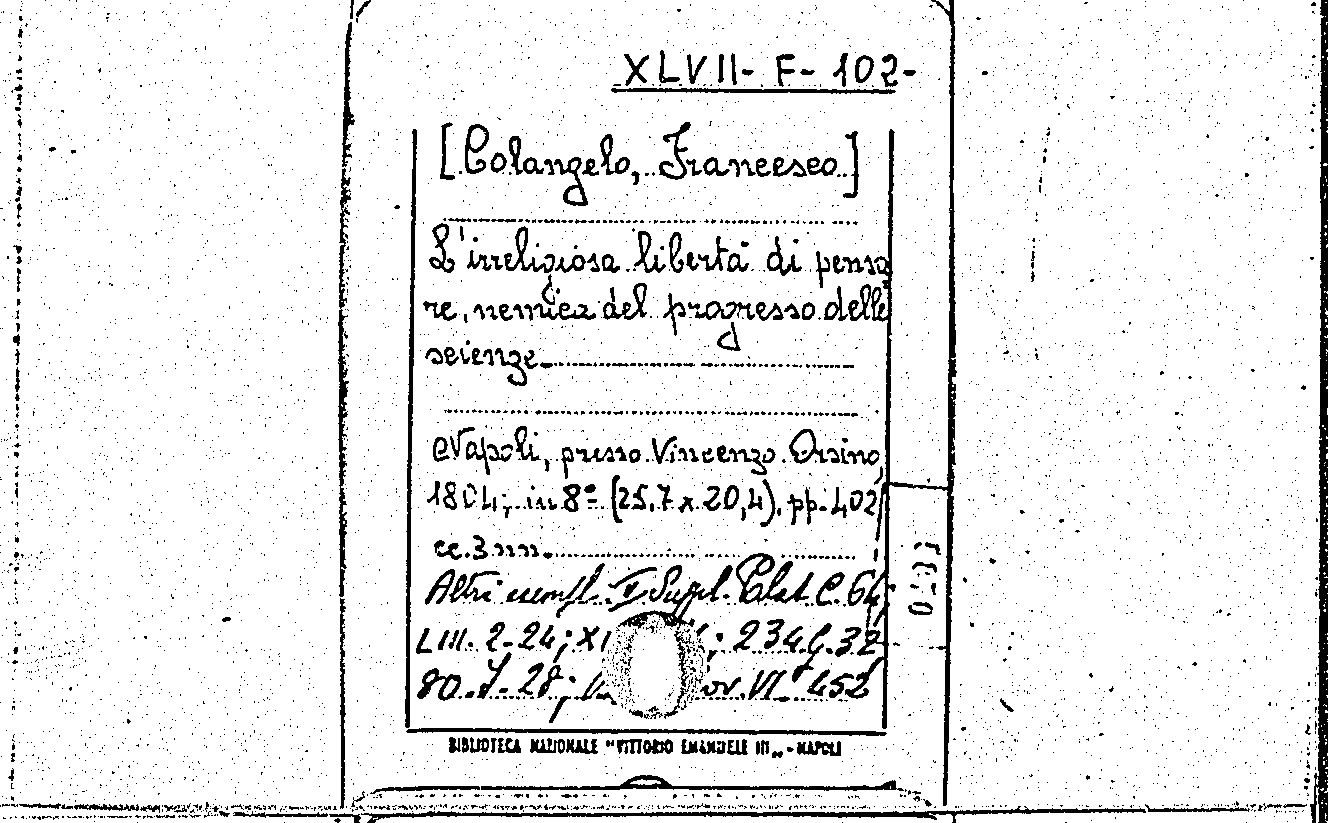 XLVII- F- 102-
[Colangelo, Francesco]
L'irreligiosa libertà di pensa
re, nemica del progresso delle
scienze
Napoli, presso Vincenzo Orsino,
1804; in 8º (25,7 x 20,4), pp. 402,
cc. 3 nn.
Altri esempl. II Suppl. Palat. C. 64;
LIII. 2-24; XI ; 234.G.32
80.J.28; ov. VI 452
BIBLIOTECA NAZIONALE "VITTORIO EMANUELE III„ - NAPOLI